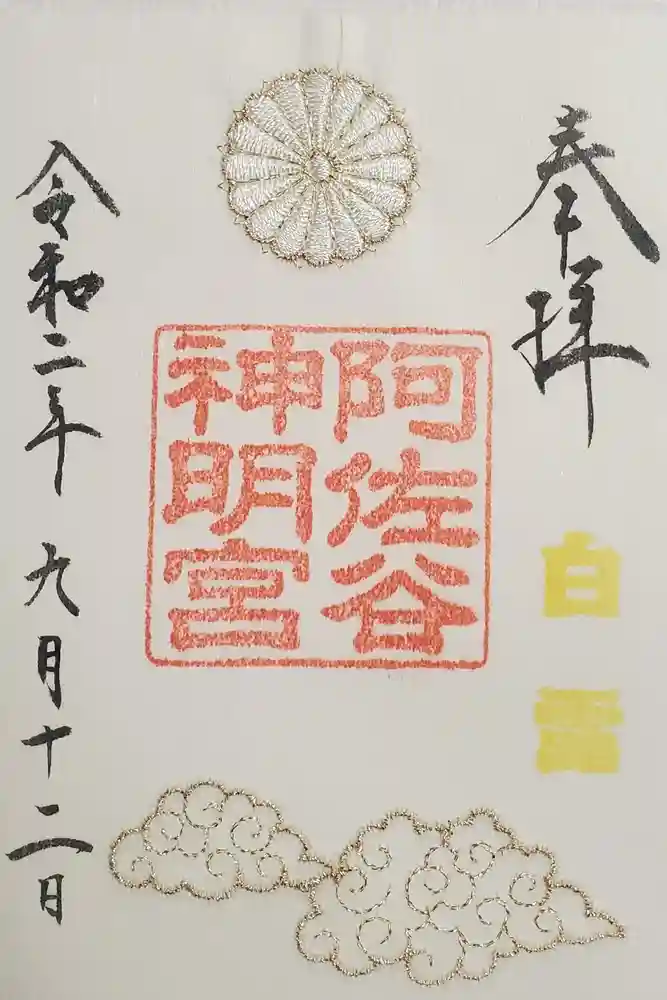 奉拝
白露
阿佐谷
神明宮
令和二年九月十二日